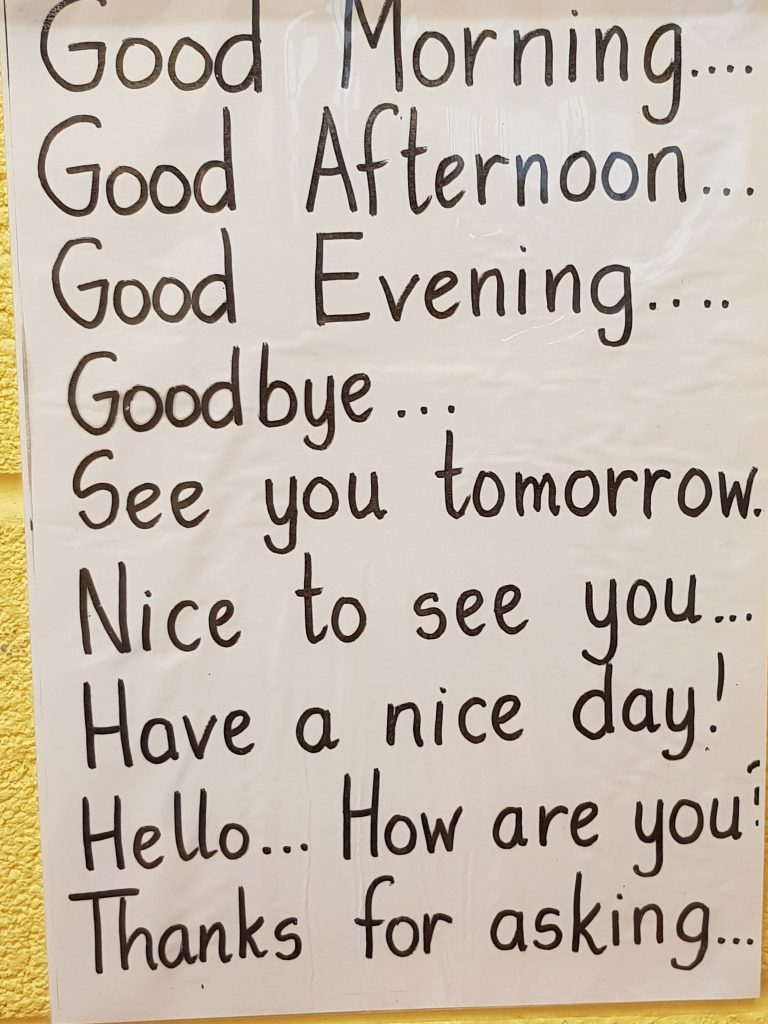 Good Morning....
Good Afternoon...
Good Evening....
Goodbye...
See you tomorrow.
Nice to see you...
Have a nice day!
Hello... How are you?
Thanks for asking...